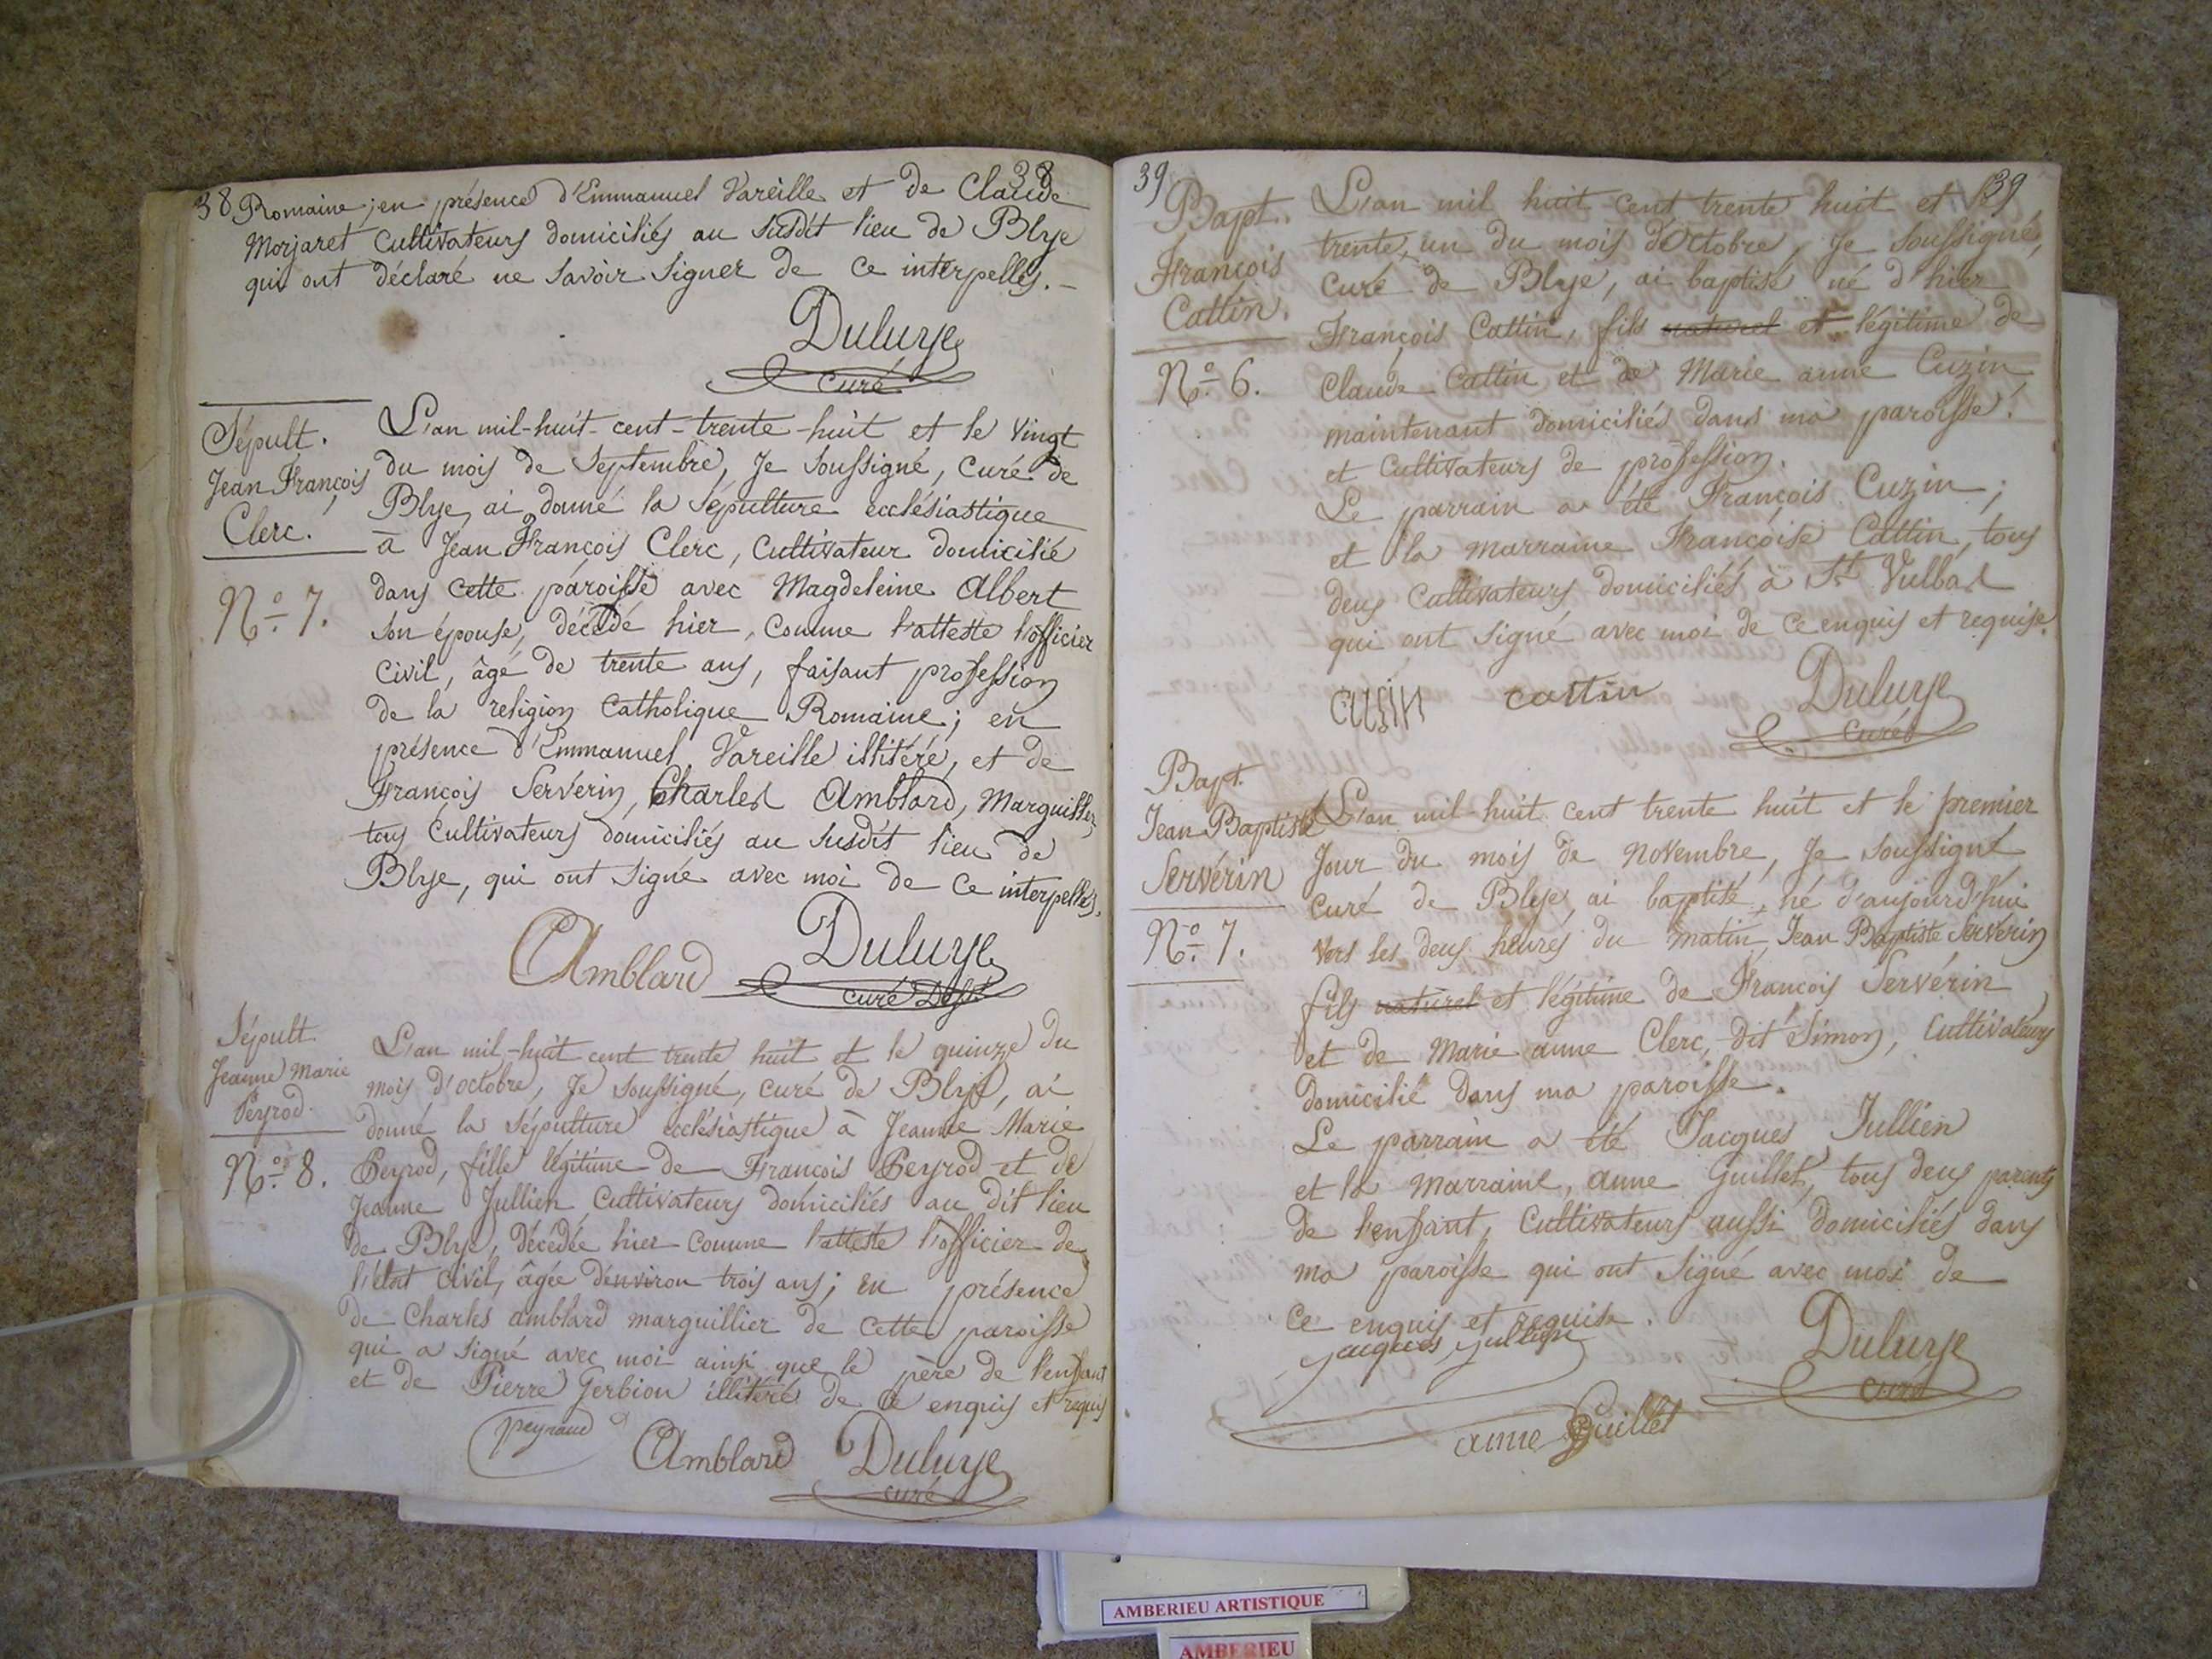 38 38
Romaine; en présence d'Emmanuel Vareille et de Claude
Morjaret Cultivateurs domiciliés au susdit lieu de Blye
qui ont déclaré ne savoir signer de ce interpellés.
Duluye
curé
Sépult.
Jean François
Clerc.
N° 7.
L'an mil-huit-cent-trente-huit et le vingt
du mois de Septembre, Je soussigné, curé de
Blye, ai donné la Sépulture ecclésiastique
à Jean François Clerc, Cultivateur domicilié
dans cette paroisse avec Magdeleine Albert
son épouse, décédé hier, comme l'atteste l'officier
civil, âgé de trente ans, faisant profession
de la religion Catholique Romaine; en
présence d'Emmanuel Vareille illitéré, et de
François Servérin, Charles Amblard, Marguiller,
tous Cultivateurs domiciliés au susdit lieu de
Blye, qui ont signé avec moi de ce interpellés.
Amblard Duluye
curé
Sépult.
Jeanne Marie
Peyrod.
N° 8.
L'an mil-huit cent trente huit et le quinze du
mois d'octobre, Je soussigné, curé de Blye, ai
donné la Sépulture ecclésiastique à Jeanne Marie
Peyrod, fille légitime de François Peyrod et de
Jeanne Jullien Cultivateurs domiciliés au dit lieu
de Blye, décédée hier comme l'atteste l'officier de
l'état civil, âgée d'environ trois ans; en présence
de Charles amblard marguillier de cette paroisse
qui a signé avec moi ainsi que le père de l'enfant
et de Pierre Gerbion illitéré de ce enquis et requis
peyraud Amblard Duluye
curé
39 39
Bapt.
François
Cattin.
N° 6.
L'an mil huit cent trente huit et le
trente, un du mois d'Octobre, Je soussigné,
curé de Blye, ai baptisé né d'hier
François Cattin, fils naturel et légitime de
Claude Cattin et de Marie anne Cuzin
maintenant domiciliés dans ma paroisse.
et Cultivateurs de profession.
Le parrain a été François Cuzin;
et la marraine Françoise Cattin, tous
deux Cultivateurs domiciliés à St Vulbas
qui ont signé avec moi de ce enquis et requise.
cusin cattin Duluye
curé
Bapt.
Jean Baptiste
Servérin
N° 7.
L'an mil-huit cent trente huit et le premier
Jour du mois de novembre, Je soussigné
curé de Blye, ai baptisé, né d'aujourd'hui
vers les deux heures du matin, Jean Baptiste Servérin
fils naturel et légitime de François Servérin
et de Marie anne Clerc, dit Simon, Cultivateurs
domicilié dans ma paroisse.
Le parrain a été Jacques Jullien
et la marraine, anne Guillet, tous deux parents
de l'enfant, Cultivateurs aussi domiciliés dans
ma paroisse qui ont signé avec moi de
ce enquis et requise.
jacques jullien Duluye
curé
anne Guillet
AMBERIEU ARTISTIQUE
AMBERIEU